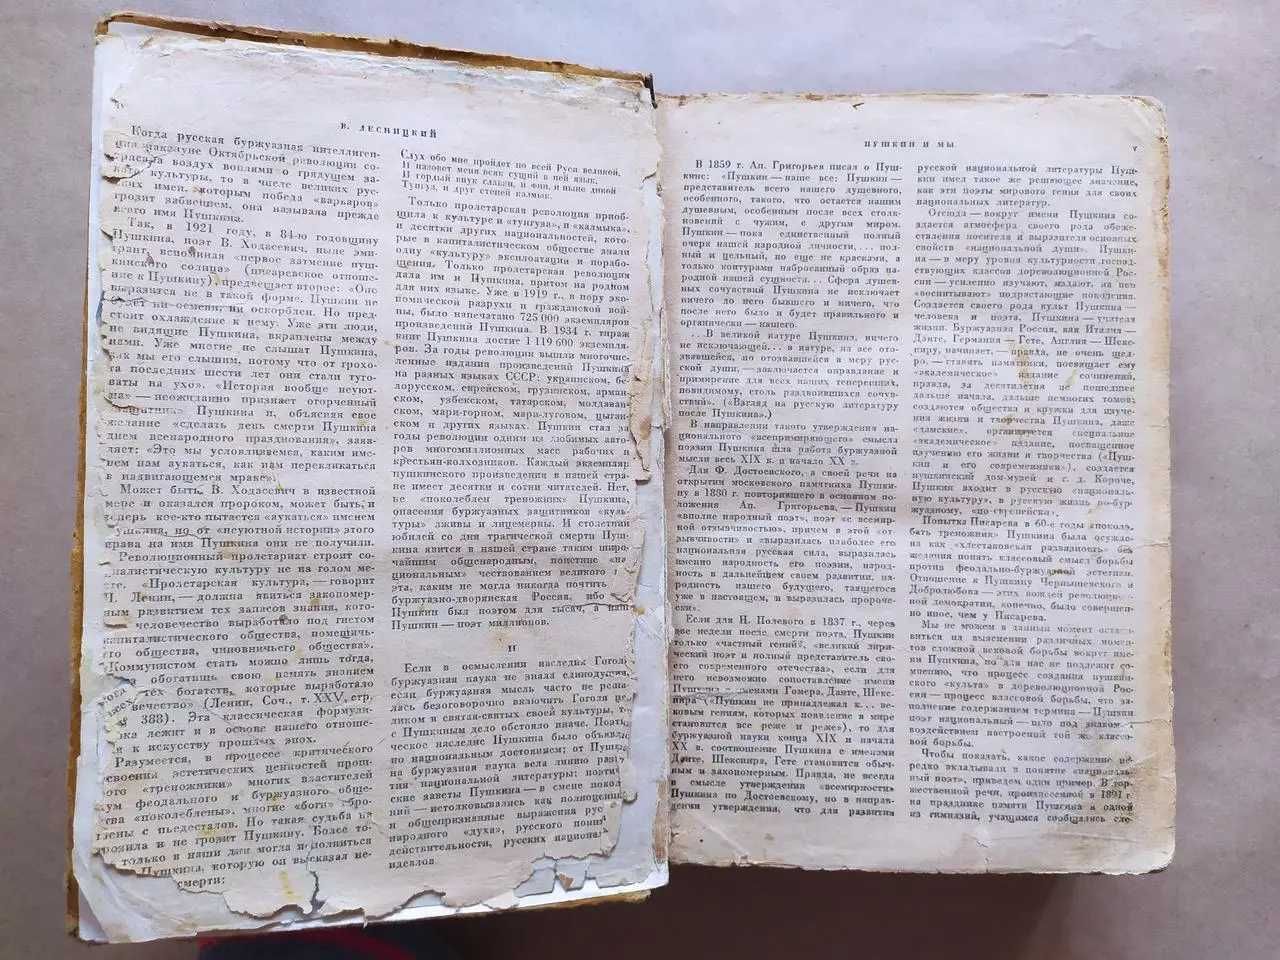 В. ДЕСНИЦКИЙ
Когда русская буржуазная интеллиген-
накануне Октябрьской революции со-
воздух воплями о грядущем за-
культуры, то в числе великих рус-
имен, которым победа «варваров»
грозит забвением, она называла прежде
имя Пушкина.
Так, в 1921 году, в 84-ю годовщину
Пушкина, поэт В. Ходасевич, ныне эми-
грант, вспоминая «первое затмение пуш-
кинского солнца» (писаревское отноше-
ние к Пушкину), предвещает второе: «Оно
выразится не в такой форме. Пушкин не
будет ни осмеян, ни оскорблен. Но пред-
стоит охлаждение к нему. Уже эти люди,
не видящие Пушкина, вкраплены между
нами. Уже многие не слышат Пушкина,
как мы его слышим, потому что от грохо-
та последних шести лет они стали туго-
ваты на ухо». «История вообще неуют-
на» — неожиданно признает огорченный
Пушкина и, объясняя свое
желание «сделать день смерти Пушкина
днем всенародного празднования», заяв-
ляет: «Это мы условливаемся, каким име-
нем нам аукаться, как нам перекликаться
в надвигающемся мраке».
Может быть, В. Ходасевич в известной
мере и оказался пророком, может быть, и
теперь кое-кто пытается «аукаться» именем
Пушкина, но от «неуютной истории» этого
права на имя Пушкина они не получили.
Революционный пролетариат строит со-
циалистическую культуру не на голом ме-
сте. «Пролетарская культура, — говорит
Ленин, — должна явиться закономер-
ным развитием тех запасов знания, кото-
человечество выработало под гнетом
капиталистического общества, помещичь-
его общества, чиновничьего общества».
«Коммунистом стать можно лишь тогда,
обогатишь свою память знанием
тех богатств, которые выработало
человечество» (Ленин, Соч., т. XXV, стр.
388). Эта классическая формули-
ровка лежит и в основе нашего отноше-
ния к искусству прошлых эпох.
Разумеется, в процессе критического
освоения эстетических ценностей прош-
«треножники» многих властителей
дум феодального и буржуазного обще-
ства «поколеблены», многие «боги» сбро-
шены с пьедесталов. Но такая судьба не
грозила и не грозит Пушкину. Более то-
только в наши дни могла исполниться
Пушкина, которую он высказал не-
смерти:
Слух обо мне пройдет по всей Руси великой,
И назовет меня всяк сущий в ней язык,
И гордый внук славян, и финн, и ныне дикой
Тунгуз, и друг степей калмык.
Только пролетарская революция приоб-
щила к культуре и «тунгуза», и «калмыка»,
и десятки других национальностей, кото-
рые в капиталистическом обществе знали
одну «культуру» эксплоатации и порабо-
щения. Только пролетарская революция
дала им и Пушкина, притом на родном
для них языке. Уже в 1919 г., в пору эко-
номической разрухи и гражданской вой-
ны, было напечатано 725 000 экземпляров
произведений Пушкина. В 1934 г. тираж
книг Пушкина достиг 1 119 600 экземпля-
ров. За годы революции вышли многочис-
ленные издания произведений Пушкина
на разных языках СССР: украинском, бе-
лорусском, еврейском, грузинском, армян-
ском, узбекском, татарском, молдаван-
ском, мари-горном, мари-луговом, цыган-
ском и других языках. Пушкин стал за
годы революции одним из любимых авто-
ров многомиллионных масс рабочих и
крестьян-колхозников. Каждый экземпляр
пушкинского произведения в нашей стра-
не имеет десятки и сотни читателей. Нет,
не «поколеблен треножник» Пушкина,
опасения буржуазных защитников «куль-
туры» лживы и лицемерны. И столетний
юбилей со дня трагической смерти Пуш-
кина явится в нашей стране таким широ-
чайшим общенародным, поистине «на-
циональным» чествованием великого по-
эта, каким не могла никогда почтить его
буржуазно-дворянская Россия, ибо
Пушкин был поэтом для тысяч, а наш
Пушкин — поэт миллионов.
II
Если в осмыслении наследия Гоголя
буржуазная наука не знала единодушия,
если буржуазная мысль часто не реша-
лась безоговорочно включить Гоголя це-
ликом в святая-святых своей культуры, то
с Пушкиным дело обстояло иначе. Поэти-
ческое наследие Пушкина было объявле-
но национальным достоянием; от Пушки-
на буржуазная наука вела линию разви-
тия национальной литературы; поэтиче-
ские заветы Пушкина — в смене поколе-
ний — истолковывались как полноценные
и общепризнанные выражения рус-
народного «духа», русского пони-
действительности, русских националь-
идеалов.
ПУШКИН И МЫ
V
В 1859 г. Ап. Григорьев писал о Пуш-
кине: «Пушкин — наше все: Пушкин —
представитель всего нашего душевного,
особенного, такого, что остается нашим
душевным, особенным после всех столк-
новений с чужим, с другим миром.
Пушкин — пока единственный полный
очерк нашей народной личности,... пол-
ный и цельный, но еще не красками, а
только контурами набросанный образ на-
родной нашей сущности... Сфера душев-
ных сочувствий Пушкина не исключает
ничего до него бывшего и ничего, что
после него было и будет правильного и
органически — нашего.
... В великой натуре Пушкина, ничего
не исключающей... в натуре, на все ото-
звавшейся, но отозвавшейся в меру рус-
ской души, — заключается оправдание и
примирение для всех наших теперешних,
повидимому, столь раздвоившихся сочув-
ствий». («Взгляд на русскую литературу
после Пушкина».)
В направлении такого утверждения на-
ционального «всепримиряющего» смысла
поэзии Пушкина шла работа буржуазной
мысли весь XIX в. и начало XX в.
Для Ф. Достоевского, в своей речи на
открытии московского памятника Пушки-
ну в 1880 г. повторившего в основном по-
ложения Ап. Григорьева, — Пушкин
«вполне народный поэт», поэт «с всемир-
ной отзывчивостью», причем в этой «от-
зывчивости» и «выразилась наиболее его
национальная русская сила, выразилась
именно народность его поэзии, народ-
ность в дальнейшем своем развитии, на-
родность нашего будущего, таящегося
уже в настоящем, и выразилась пророче-
ски».
Если для Н. Полевого в 1837 г., через
две недели после смерти поэта, Пушкин
только «частный гений», «великий лири-
ческий поэт и полный представитель сво-
его современного отечества», если для
него невозможно сопоставление имени
Пушкина с именами Гомера, Данте, Шекс-
пира («Пушкин не принадлежал к... ве-
ковым гениям, которых появление в мире
становится все реже и реже»), то для
буржуазной науки конца XIX и начала
XX в. соотношение Пушкина с именами
Данте, Шекспира, Гете становится обыч-
ным и закономерным. Правда, не всегда
в смысле утверждения «всемирности»
Пушкина по Достоевскому, но в направ-
лении утверждения, что для развития
русской национальной литературы Пуш-
кин имел такое же решающее значение,
как эти поэты мирового гения для своих
национальных литератур.
Отсюда — вокруг имени Пушкина со-
здается атмосфера своего рода обоже-
ствления носителя и выразителя основных
свойств «национальной души». Пушки-
на — в меру уровня культурности господ-
ствующих классов дореволюционной Рос-
сии — усиленно изучают, издают, на нем
«воспитывают» подрастающие поколения.
Создается своего рода культ Пушкина —
человека и поэта, Пушкина — учителя
жизни. Буржуазная Россия, как Италия —
Данте, Германия — Гете, Англия — Шекс-
пиру, начинает, — правда, не очень щед-
ро, — ставить памятники, посвящает ему
«академическое» издание сочинений,
правда, за десятилетия не пошедшее
дальше начала, дальше немногих томов;
создаются общества и кружки для изуче-
ния жизни и творчества Пушкина, даже
«дамские», организуется специальное
«академическое» издание, посвященное
изучению его жизни и творчества («Пуш-
кин и его современники»), создается
пушкинский дом-музей и т. д. Короче,
Пушкин входит в русскую «националь-
ную культуру», в русскую жизнь по-бур-
жуазному, «по-европейски».
Попытка Писарева в 60-е годы «поколе-
бать треножник» Пушкина была осужде-
на как «хлестаковская развязность» без
желания понять классовый смысл борьбы
против феодально-буржуазной эстетики.
Отношение к Пушкину Чернышевского и
Добролюбова — этих вождей революцион-
ной демократии, конечно, было совершен-
но иное, чем у Писарева.
Мы не можем в данный момент остано-
виться на выяснении различных момен-
тов сложной вековой борьбы вокруг име-
ни Пушкина, но для нас не подлежит со-
мнению, что процесс создания пушкин-
ского «культа» в дореволюционной Рос-
сии — процесс классовой борьбы, что за-
полнение содержанием термина — Пушкин
поэт национальный — шло под знаком и
воздействием настроений той же классо-
вой борьбы.
Чтобы показать, какое содержание не-
редко вкладывали в понятие «националь-
ный поэт», приведем один пример. В тор-
жественной речи, произнесенной в 1891 г.
на празднике памяти Пушкина в одной
из гимназий, учащимся сообщались сле-